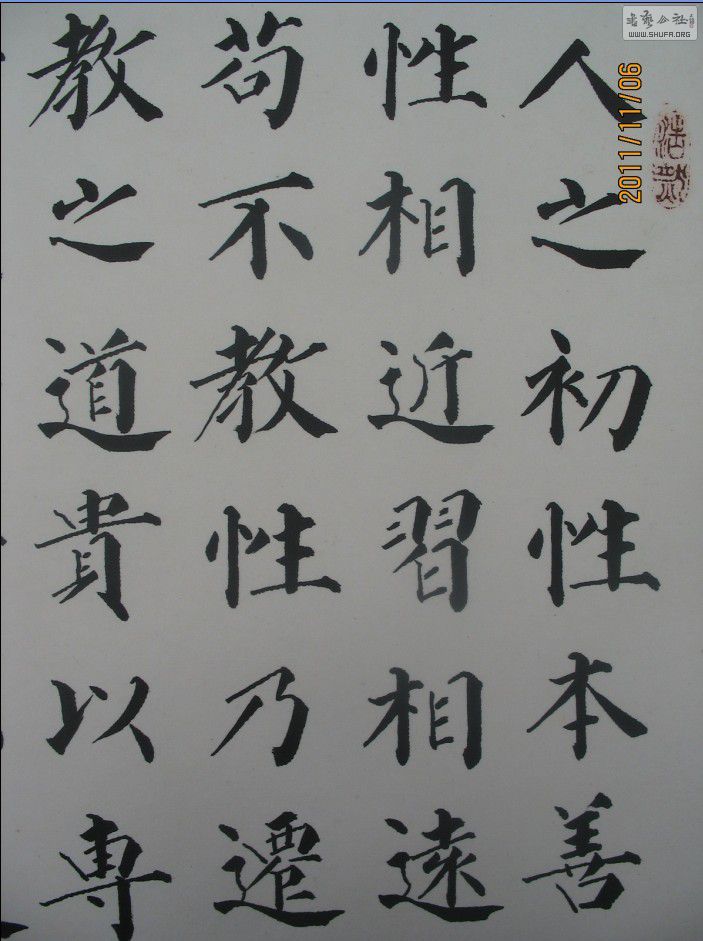 人之初性本善
性相近習相遠
苟不教性乃遷
教之道貴以專
2011/11/06
WWW.SHUFA.ORG